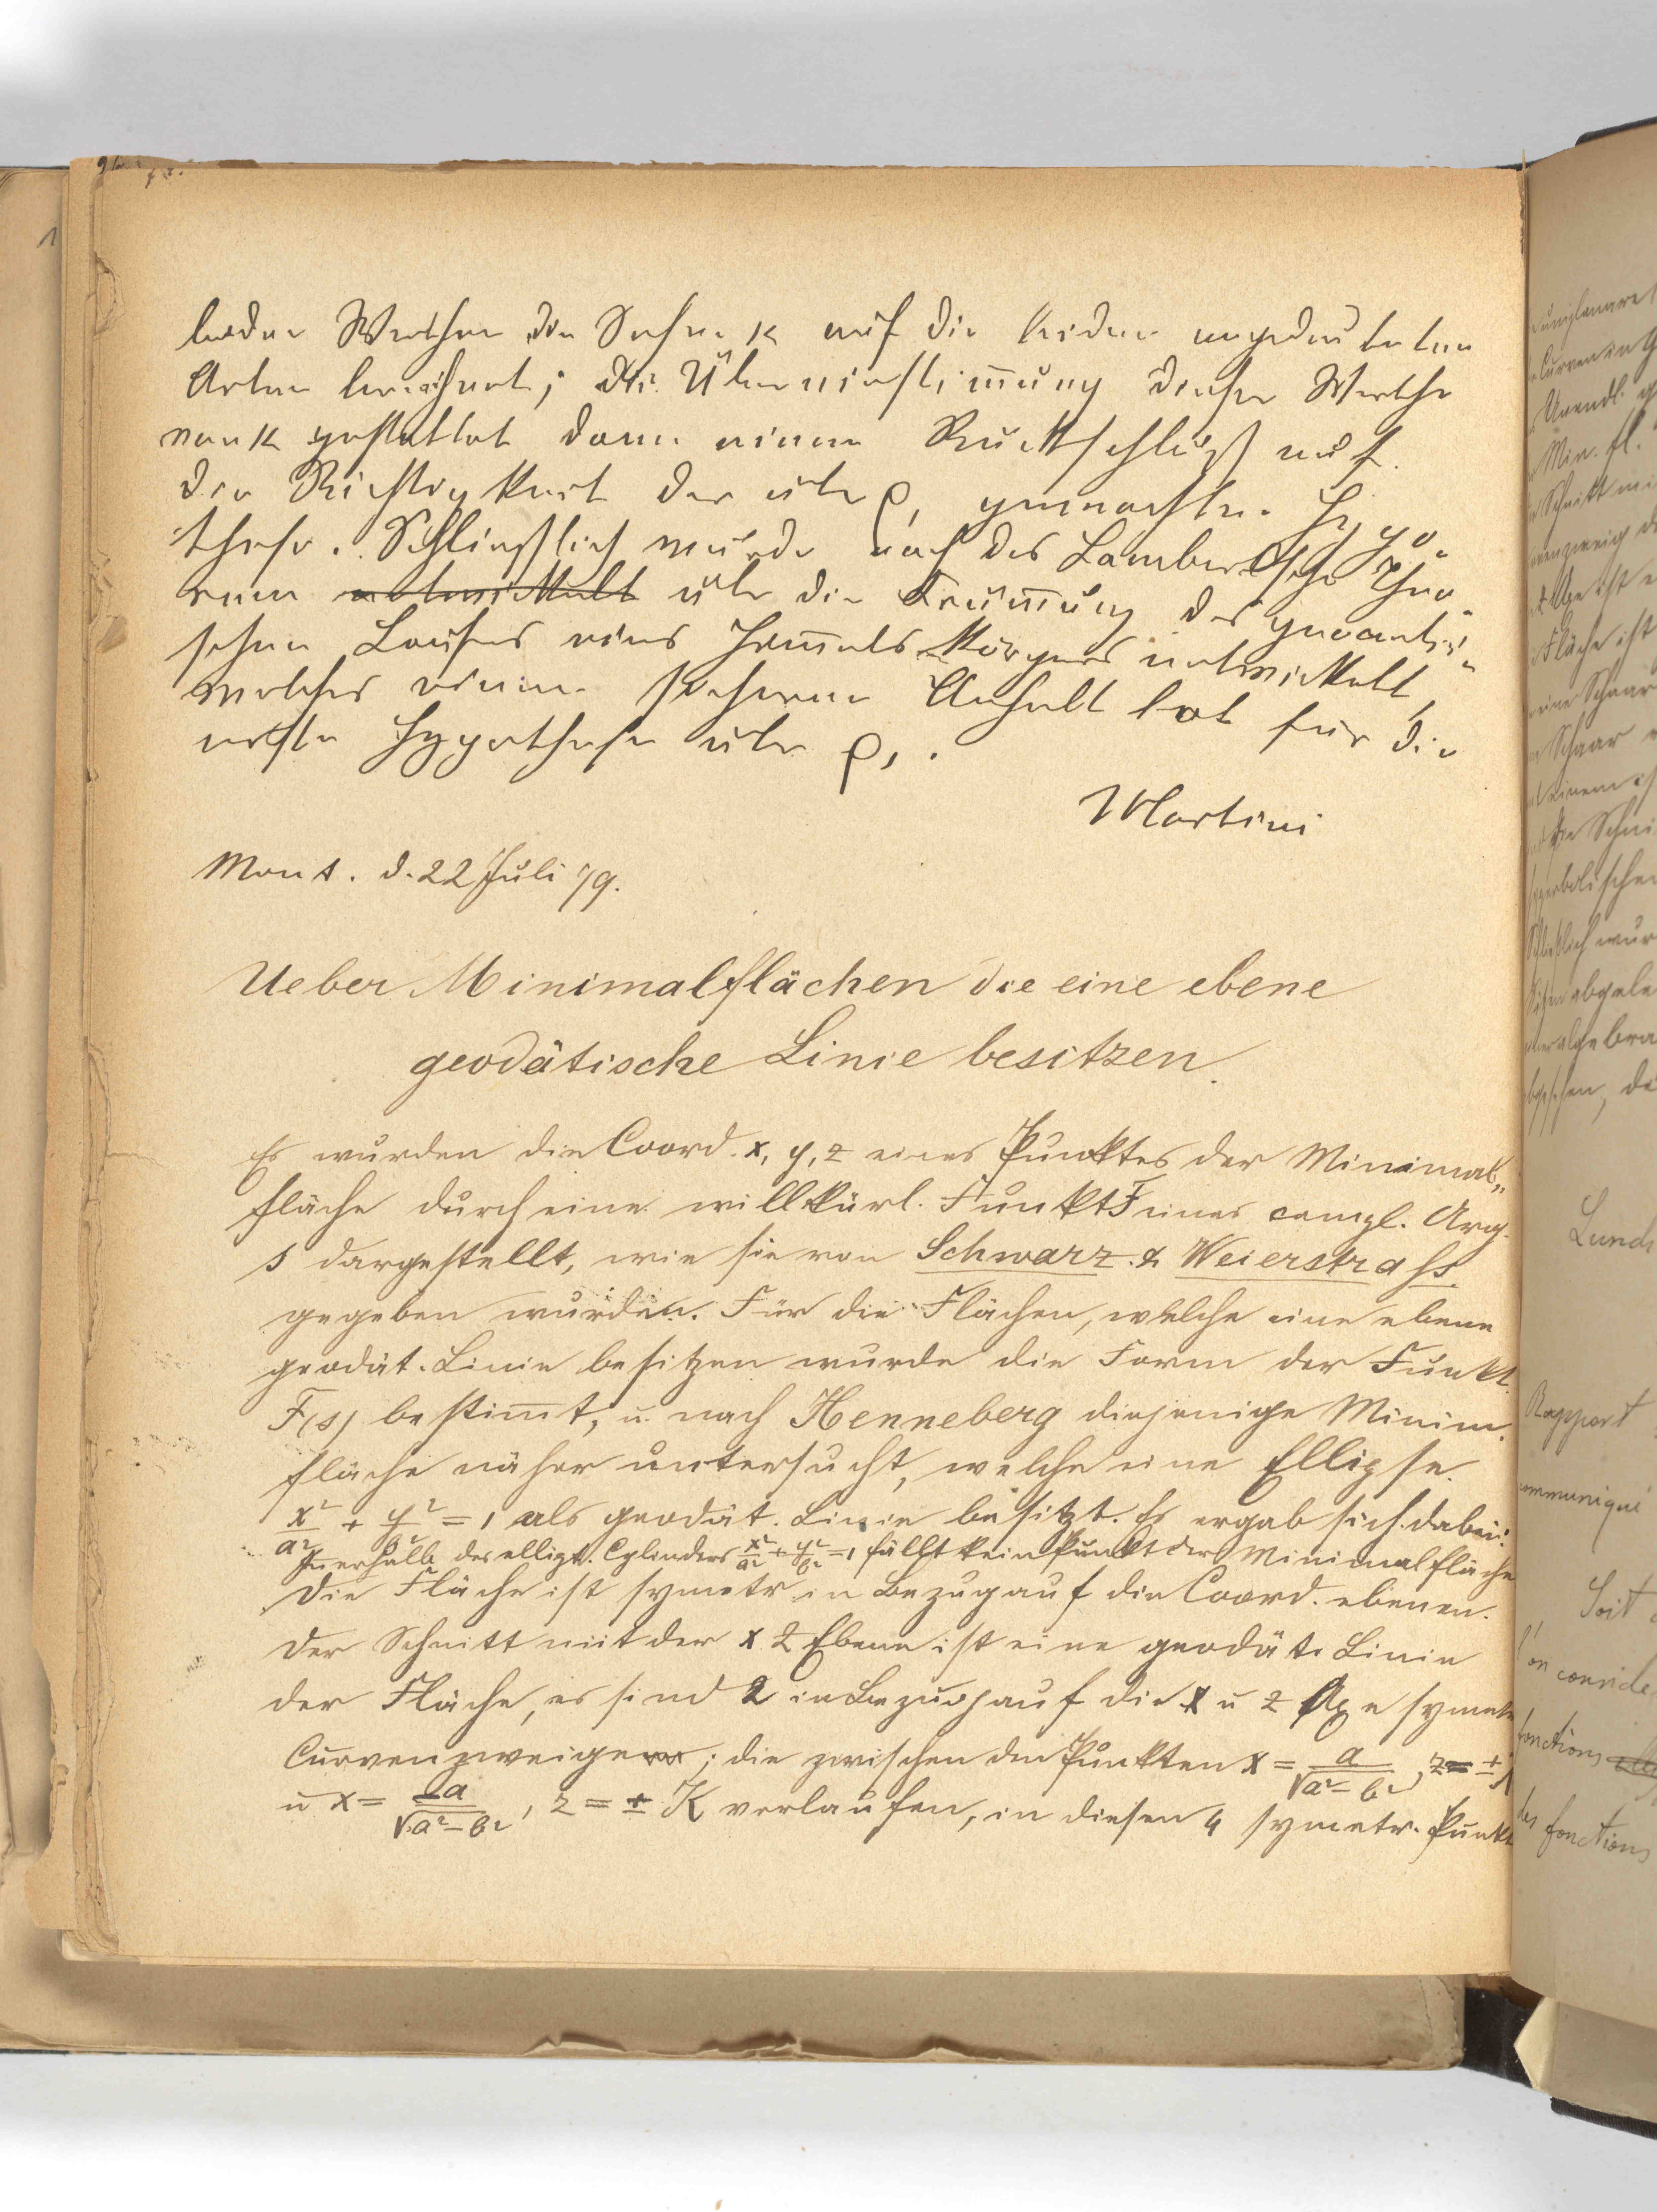 beiden Werthen die Sehne k auf die beiden angedeuteten
Arten berechnet; die Übereinstimmung dieser Werthe
von k gestattet dann einen Rückschluß auf
die Richtigkeit der über ρ, gemachten Hypo-
these. Schließlich wurde noch das Lambertsche Theo-
rem entwickelt über die Krümmung des geocentri-
schen Laufes eines Himmels-Körpers entwickelt,
welches einen sicheren Anhalt bot für die
erste Hypothese über ρ, .
Martini
Mont. d. 22 Juli 79.
Ueber Minimalflächen die eine ebene
geodätische Linie besitzen.
Es wurden die Coord. x, y, z eines Punktes der Minimal„
fläche durch eine willkürl. Funkt F eines compl. Arg.
s dargestellt, wie sie von Schwarz & Weierstrass
gegeben wurden. Für die Flächen, welche eine ebene
geodät. Linie besitzen wurde die Form der Funkt.
F(s) bestimmt, u. nach Henneberg diejenige Minim.
fläche näher untersucht, welche eine Ellipse
x²/a² + y²/b² = 1 als geodät. Linie besitzt. Es ergab sich dabei:
Innerhalb des ellipt. Cylinders x²/a² + y²/b² = 1 fällt kein Punkt der Minimalfläche
Die Fläche ist symetr. in Bezug auf die Coord. ebenen.
Der Schnitt mit der x z Ebene ist eine geodät. Linie
der Fläche, es sind 2 in Bezug auf die x u z Axe symetr
Curvenzweige; die zwischen den Punkten x = a/√a²-b², z = ±K
u x = -a/√a²-b², z = ± K verlaufen, in diesen 4 symetr. Punkt
Lund
Rapport
communiqué
Soit
fonctions
fonctions